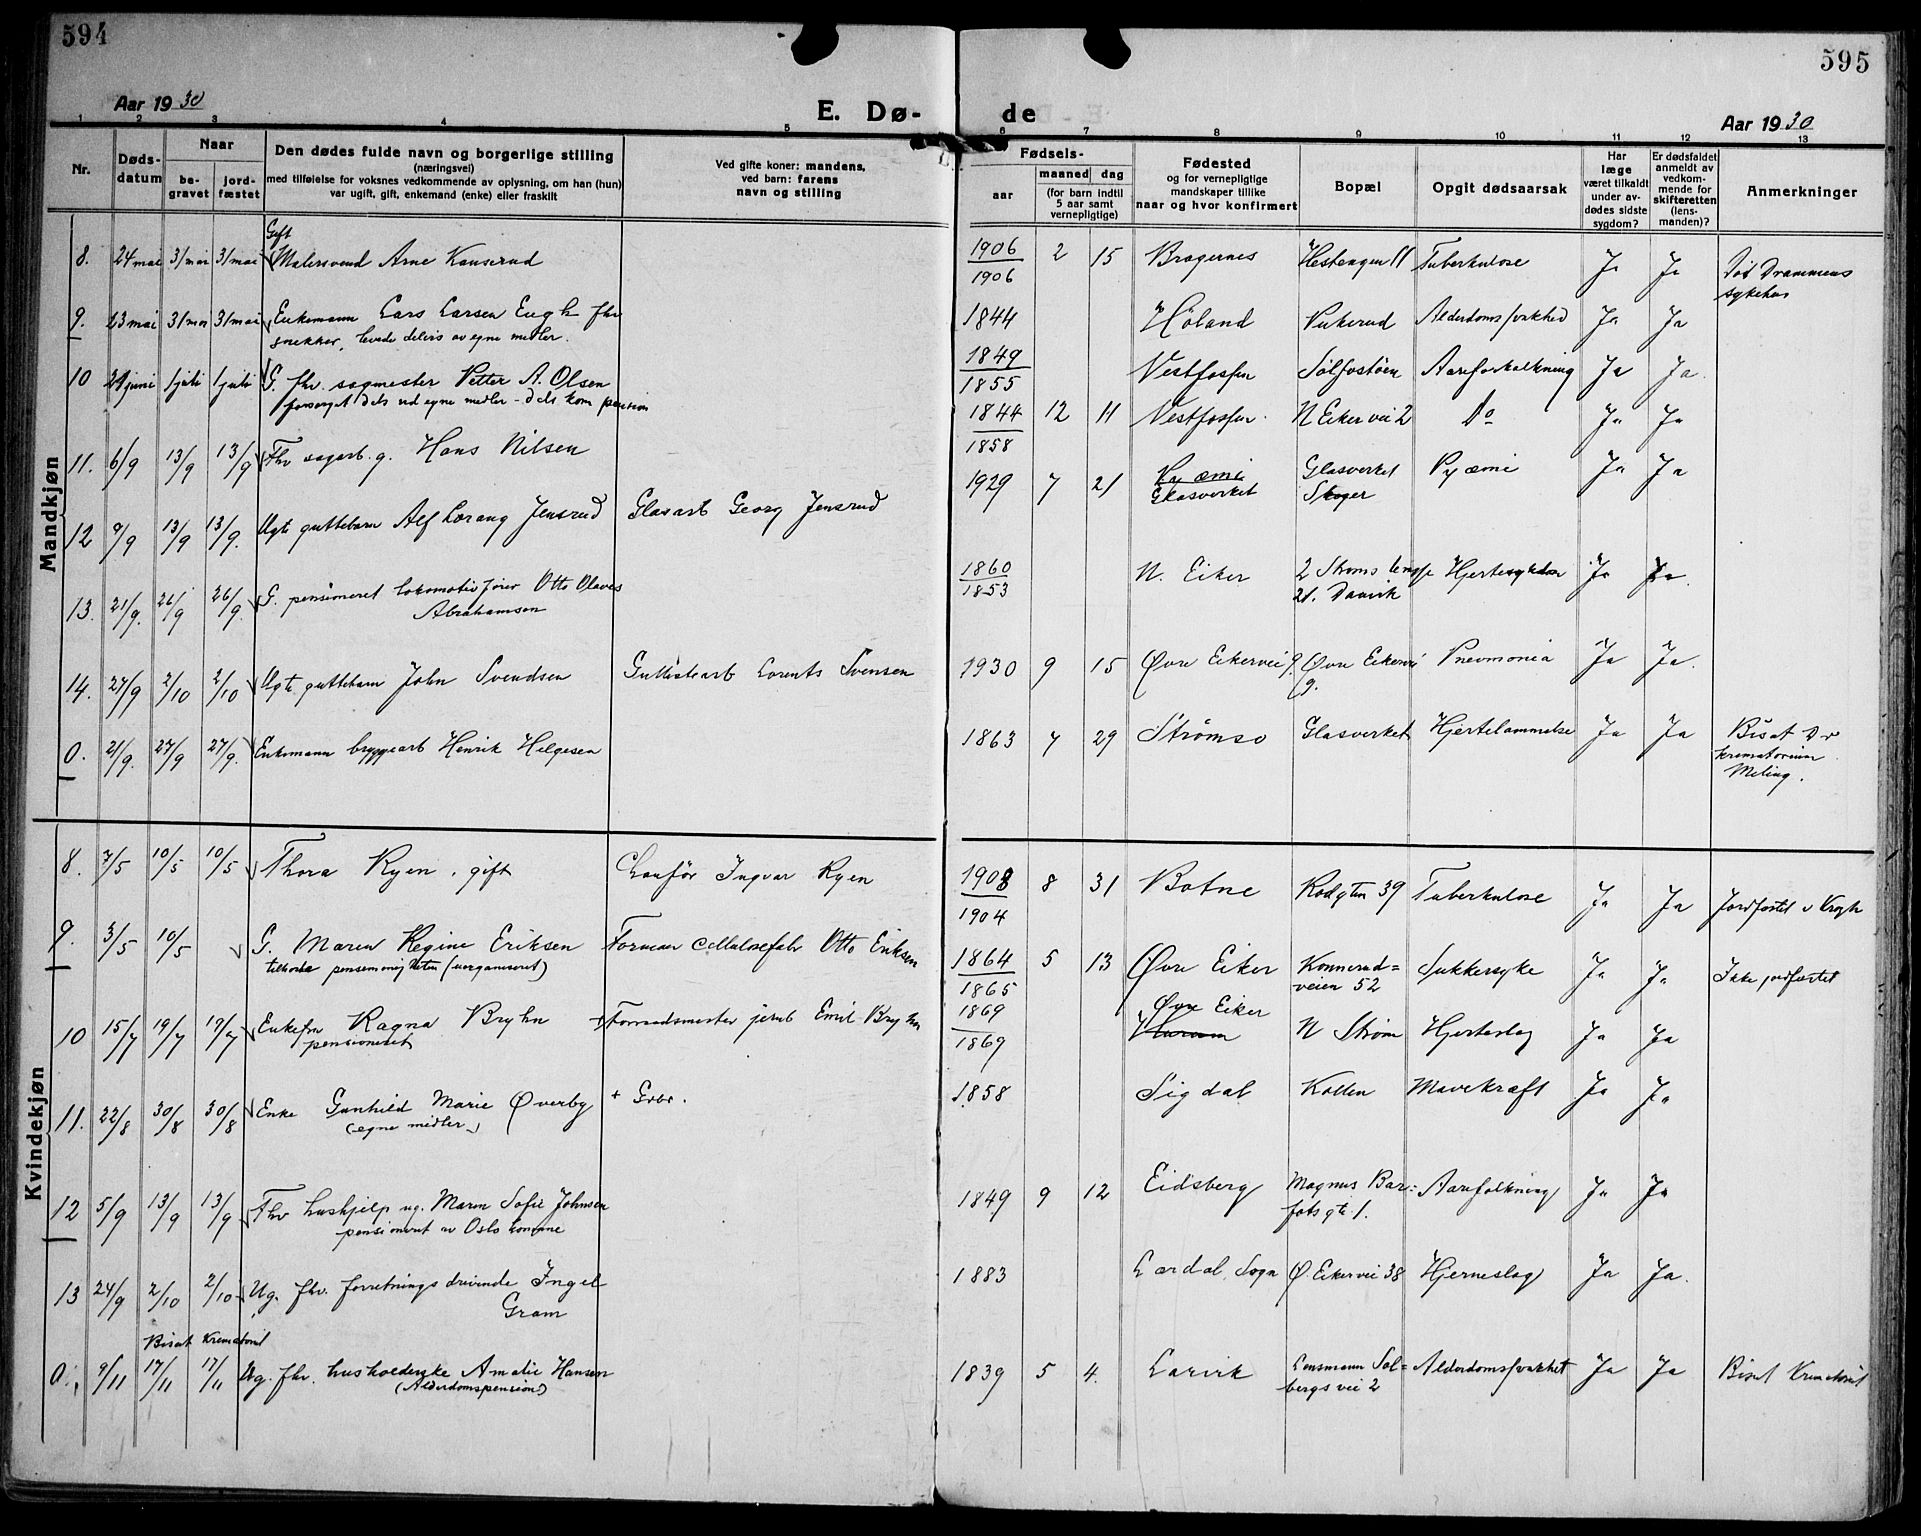 594
Aar 1930
E. Dø-
1 2 3 4 5
Nr.
Døds-
datum
Naar
be-
gravet
jord-
fæstet
Den dødes fulde navn og borgerlige stilling
(næringsvei)
med tilføielse for voksnes vedkommende av oplysning, om han (hun)
var ugift, gift, enkemand (enke) eller fraskilt
Ved gifte koner: mandens,
ved barn: farens
navn og stilling
Mandkjøn
Gift
8. 24 mai 31 mai 31 mai Malersvend Arne Kanserud
9. 23 mai 31 mai 31 mai Enkemann Lars Larsen Eugh fhv
snekker, levede delvis av egne midler.
10 29 juni 1 juli 1 juli G. fhv. sagmester Petter A. Olsen
forsørget dels ved egne midler - dels kom pension
11. 6/9 13/9 13/9 Fhv sagarb. g. Hans Nilsen
12 9/9 13/9 13/9. Ugte guttebarn Alf Lorang Jensrud Glasarb Georg Jensrud
13. 21/9. 26/9 26/9. G. pensioneret lokomotivfører Otto Olaves
Abrahamsen
14. 27/9 2/10 2/10 Ugte guttebarn John Svendsen Lorents Svensen
0. 21/9. 27/9 27/9. Enkemann bryggearb Henrik Helgesen
Kvindekjøn
8. 7/5 10/5 10/5 Thora Ryen, gift Chaufør Ingvar Ryen
9. 3/5 10/5 G. Maren Regine Eriksen Forman cellulosefabr Otto Eriksen
10 15/7 19/7 19/7 Enkefru Ragna Bryhn + Formandsmester jernb Emil Bryhn
pensioneret
11. 22/8 30/8 30/8 Enke Gunhild Marie Øverby + Gbr.
(egne midler)
12 5/9 13/9 13/9 Fhv hushjelp ug. Maren Sofie Johnsen
pensioneret av Oslo komune
13 24/9 2/10 2/10 Ug. fhv. forretningsdrivende Ingel
Gram
Bisat Krematoriet
0. 9/11 17/11 17/11 Ug. fhv. husholderske Amalie Hansen
(Alderdomspension)
595
de
Aar 1930
6 7 8 9 10 11 12 13
Fødsels-
aar
maaned dag
(for barn indtil
5 aar samt
vernepligtige)
Fødested
og for vernepligtige
mandskaper tillike
naar og hvor konfirmert
Bopæl
Opgit dødsaarsak
Har
læge
været tilkaldt
under av-
dødes sidste
sygdom?
Er dødsfaldet
anmeldt av
vedkom-
mende for
skifteretten
(lens-
manden)?
Anmerkninger
1906/1906 2 15 Bragernes Hestengen 11 Tuberkulose Ja Ja Død Drammens
sykehus
1844 Høland Pukerud Alderdomssvakhed Ja Ja
1849/1855 Vestfossen Sølfastøen Aareforkalkning Ja Ja.
1844/1858 12 11 Vestfossen. N Eikervei 2 Do Ja Ja
1929 7 21 Pyæmi Glasverket Pyæmi Ja Ja
Glasverket Skoger
1860/1853 N. Eiker 2 Strøms terrasse Hjertesykdom Ja Ja.
21. Danvik
1930 9 15 Øvre Eikervei 9. Øvre Eikervei Pnevmonia Ja Ja.
9.
1863 7 29 Strømsø Glasverket Hjertelammelse Ja Ja Bisat Dr
krematorium
Meling.
1903/1904 8 31 Botne Rødgten 39 Tuberkulose Ja Ja Jordfæstet v Krogh
1864/1865 5 13 Øvre Eiker Konnerud=
veien 52 Sukkersyke Ja Ja Ikke jordfæstet
1869/1869 Øvre Eiker
Hurum N Strøm Hjerteslag Ja Ja
1858 Sigdal Kollen Mavekræft Ja Ja
1849 9 12 Eidsberg Magnus Bar=
fots gt. 1. Aareforkalkning Ja Ja
1883 Lærdal, Sogn Ø. Eikervei 38 Hjerneslag Ja Ja.
1839 5 4. Larvik Lensmann Sol=
bergs vei 2 Alderdomssvakhet Ja Ja Bisat Krematoriet